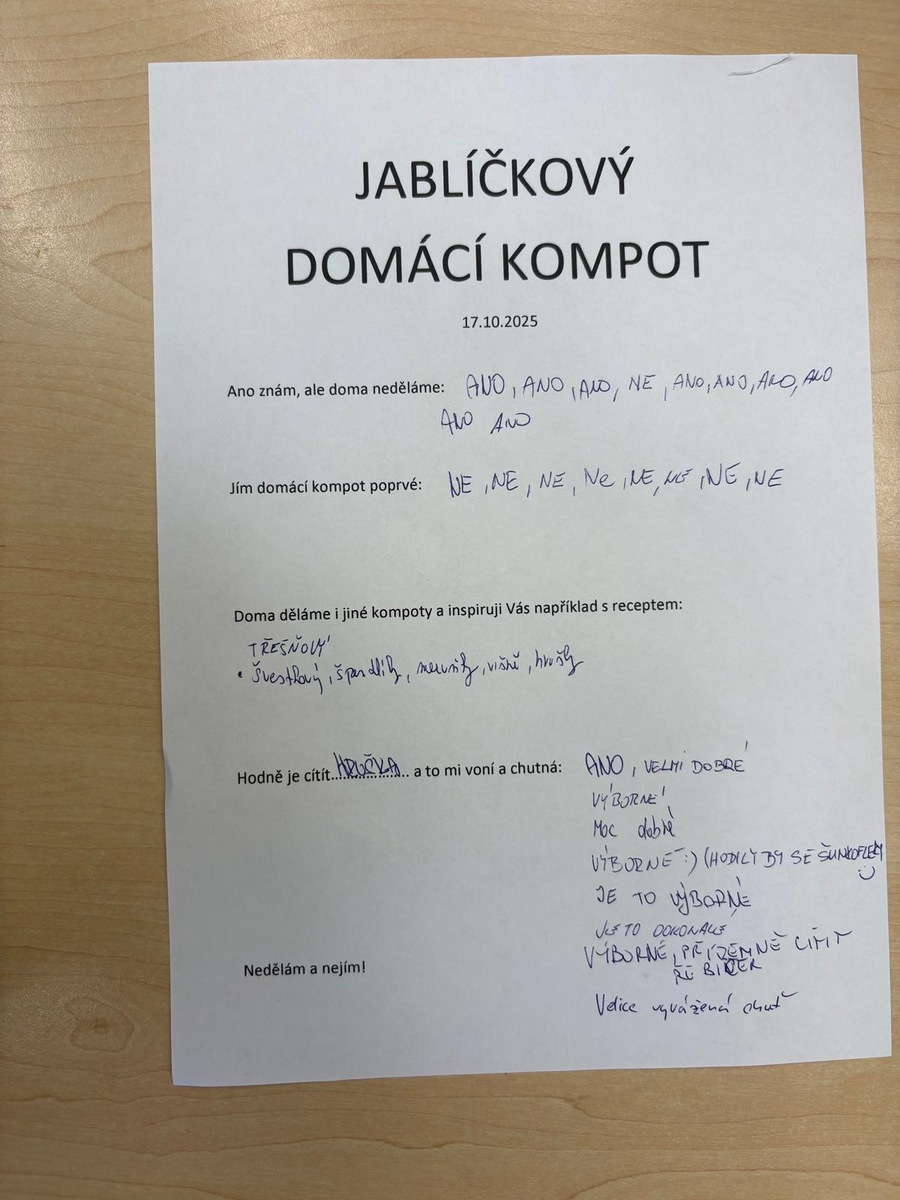 JABLÍČKOVÝ
DOMÁCÍ KOMPOT
17.10.2025
Ano znám, ale doma neděláme: ANO, ANO, ANO, NE, ANO, ANO, ANO, ANO
ANO ANO
Jím domácí kompot poprvé: NE, NE, NE, Ne, NE, NE, NE, NE
Doma děláme i jiné kompoty a inspiruji Vás například s receptem:
TŘEŠŇOVÝ
• Švestkový, špendlíky, meruňky, višně, hrušky
Hodně je cítit.................. a to mi voní a chutná: ANO, VELMI DOBRÉ
VÝBORNÉ!
Moc dobré
VÝBORNÉ :) (HODILY BY SE ŠUNKOFLEKY
JE TO VÝBORNÉ
JE TO DOKONALÉ
VÝBORNÉ, PŘÍJEMNĚ CÍTIT
Nedělám a nejím!
Velice vyvážená chuť